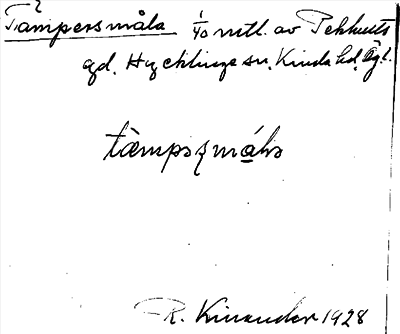 Tämpersmåla 1/40 mtl. av Pekhults
gd. Hycklinge sn. Kinda hd. Ögl.
tæ̀mpsʐmáləs
R. Kinander 1928